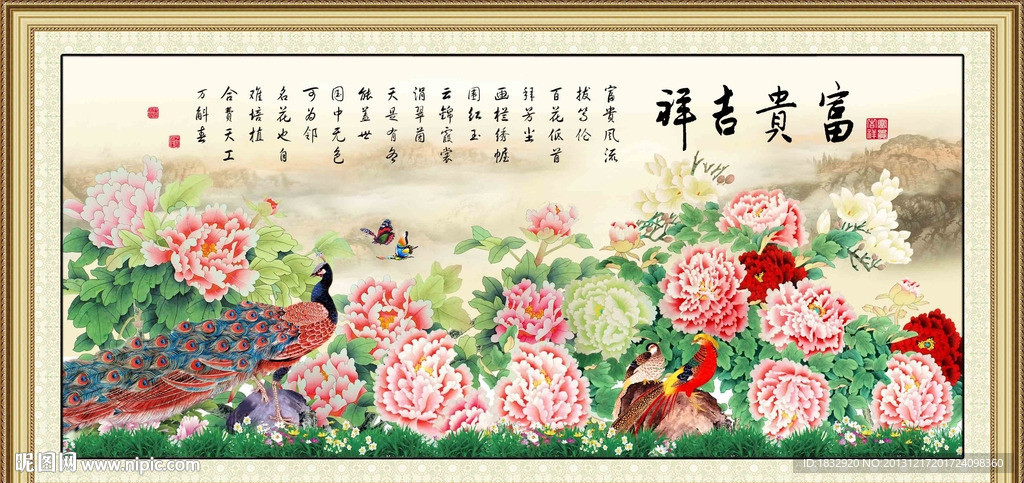 富貴吉祥
富貴风流
拔等伦
百花低首
拜芳尘
画栏绣幄
围红玉
云锦霞裳
涓翠茵
天是有名
能盖世
国中无色
可为邻
名花也自
难培植
合费天工
万斛春
昵图网 www.nipic.com
ID:1832920 NO:20131217201724098360